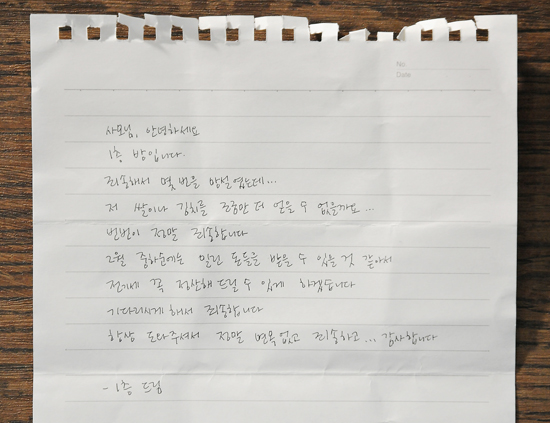 No.
Date
사모님, 안녕하세요
1층 방입니다.
죄송해서 몇번을 망설였는데...
저 쌀이나 김치를 조금만 더 얻을 수 없을까요...
번번이 정말 죄송합니다
2월 중하순에는 밀린 돈들을 받을 수 있을 것 같아서
전기세 꼭 정산해 드릴 수 있게 하겠습니다
기다리시게 해서 죄송합니다
항상 도와주셔서 정말 면목없고 죄송하고... 감사합니다
- 1층 드림